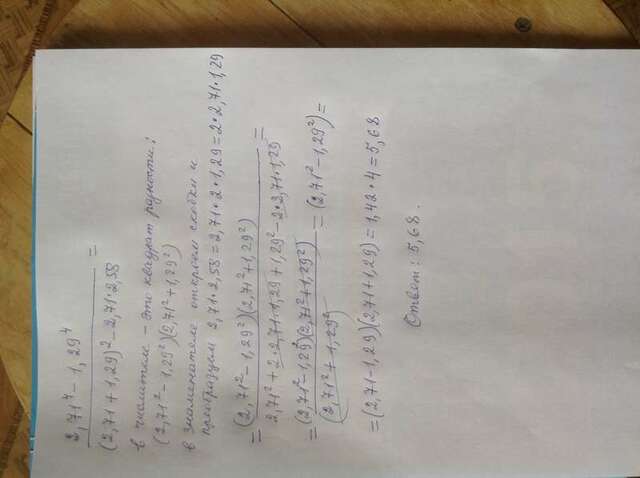 2,71⁴ - 1,29⁴
(2,71 + 1,29)² - 2,71·2,58 =
в числителе - это квадрат разности:
(2,71² - 1,29²)(2,71² + 1,29²)
в знаменателе откроем скобки и
преобразуем 2,71·2,58 = 2,71·2·1,29 = 2·2,71·1,29
= (2,71² - 1,29²)(2,71² + 1,29²) =
2,71² + 2·2,71·1,29 + 1,29² - 2·2,71·1,29
= (2,71² - 1,29²)(2,71² + 1,29²) = (2,71² - 1,29²) =
(2,71² + 1,29²)
= (2,71 - 1,29)(2,71 + 1,29) = 1,42·4 = 5,68
Ответ: 5,68.